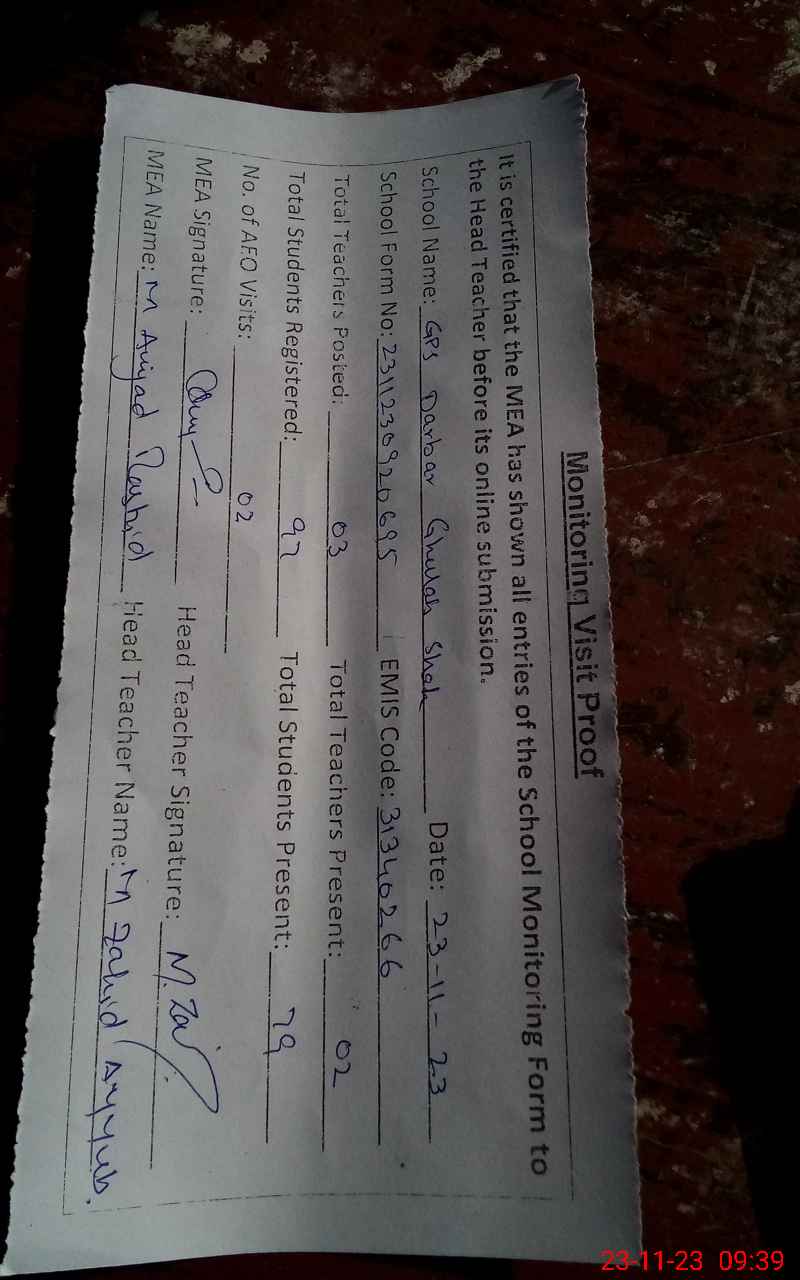 Monitoring Visit Proof
It is certified that the MEA has shown all entries of the School Monitoring Form to
the Head Teacher before its online submission.
School Name: GPS Darbar Ghulah Shah Date: 23-11-23
School Form No: 2311230920695 EMIS Code: 31340266
Total Teachers Posted: 03 Total Teachers Present: 02
Total Students Registered: 97 Total Students Present: 79
No. of AEO Visits: 02
MEA Signature: Head Teacher Signature: M. Za
MEA Name: M Amjad Rashid Head Teacher Name: M Zahid Ayyub.
23-11-23 09:39